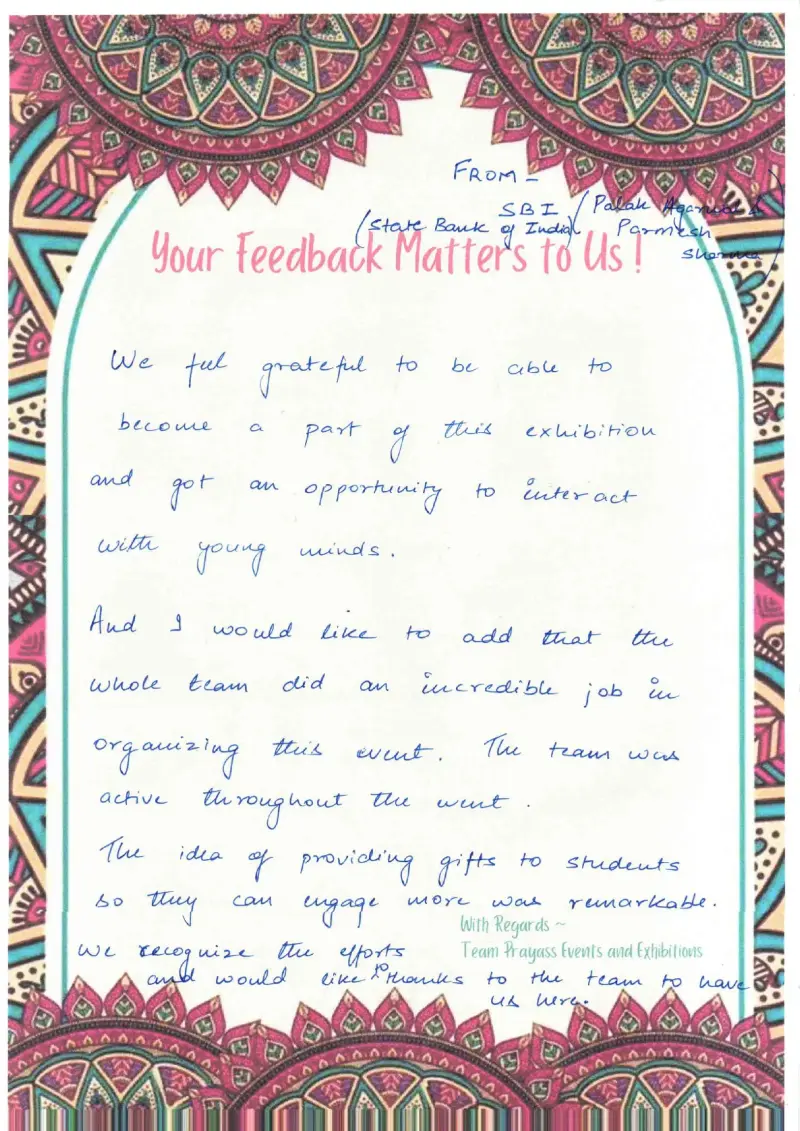 FROM -
SBI (Palak Agarwal &
(State Bank of India) Parmesh
Sharma)
Your Feedback Matters to Us !
We feel grateful to be able to
become a part of this exhibition
and got an opportunity to interact
with young minds.
And I would like to add that the
whole team did an incredible job in
organizing this event. The team was
active throughout the event.
The idea of providing gifts to students
so they can engage more was remarkable.
With Regards ~
Team Prayass Events and Exhibitions
We recognize the efforts
and would like to thanks to the team to have
us here.